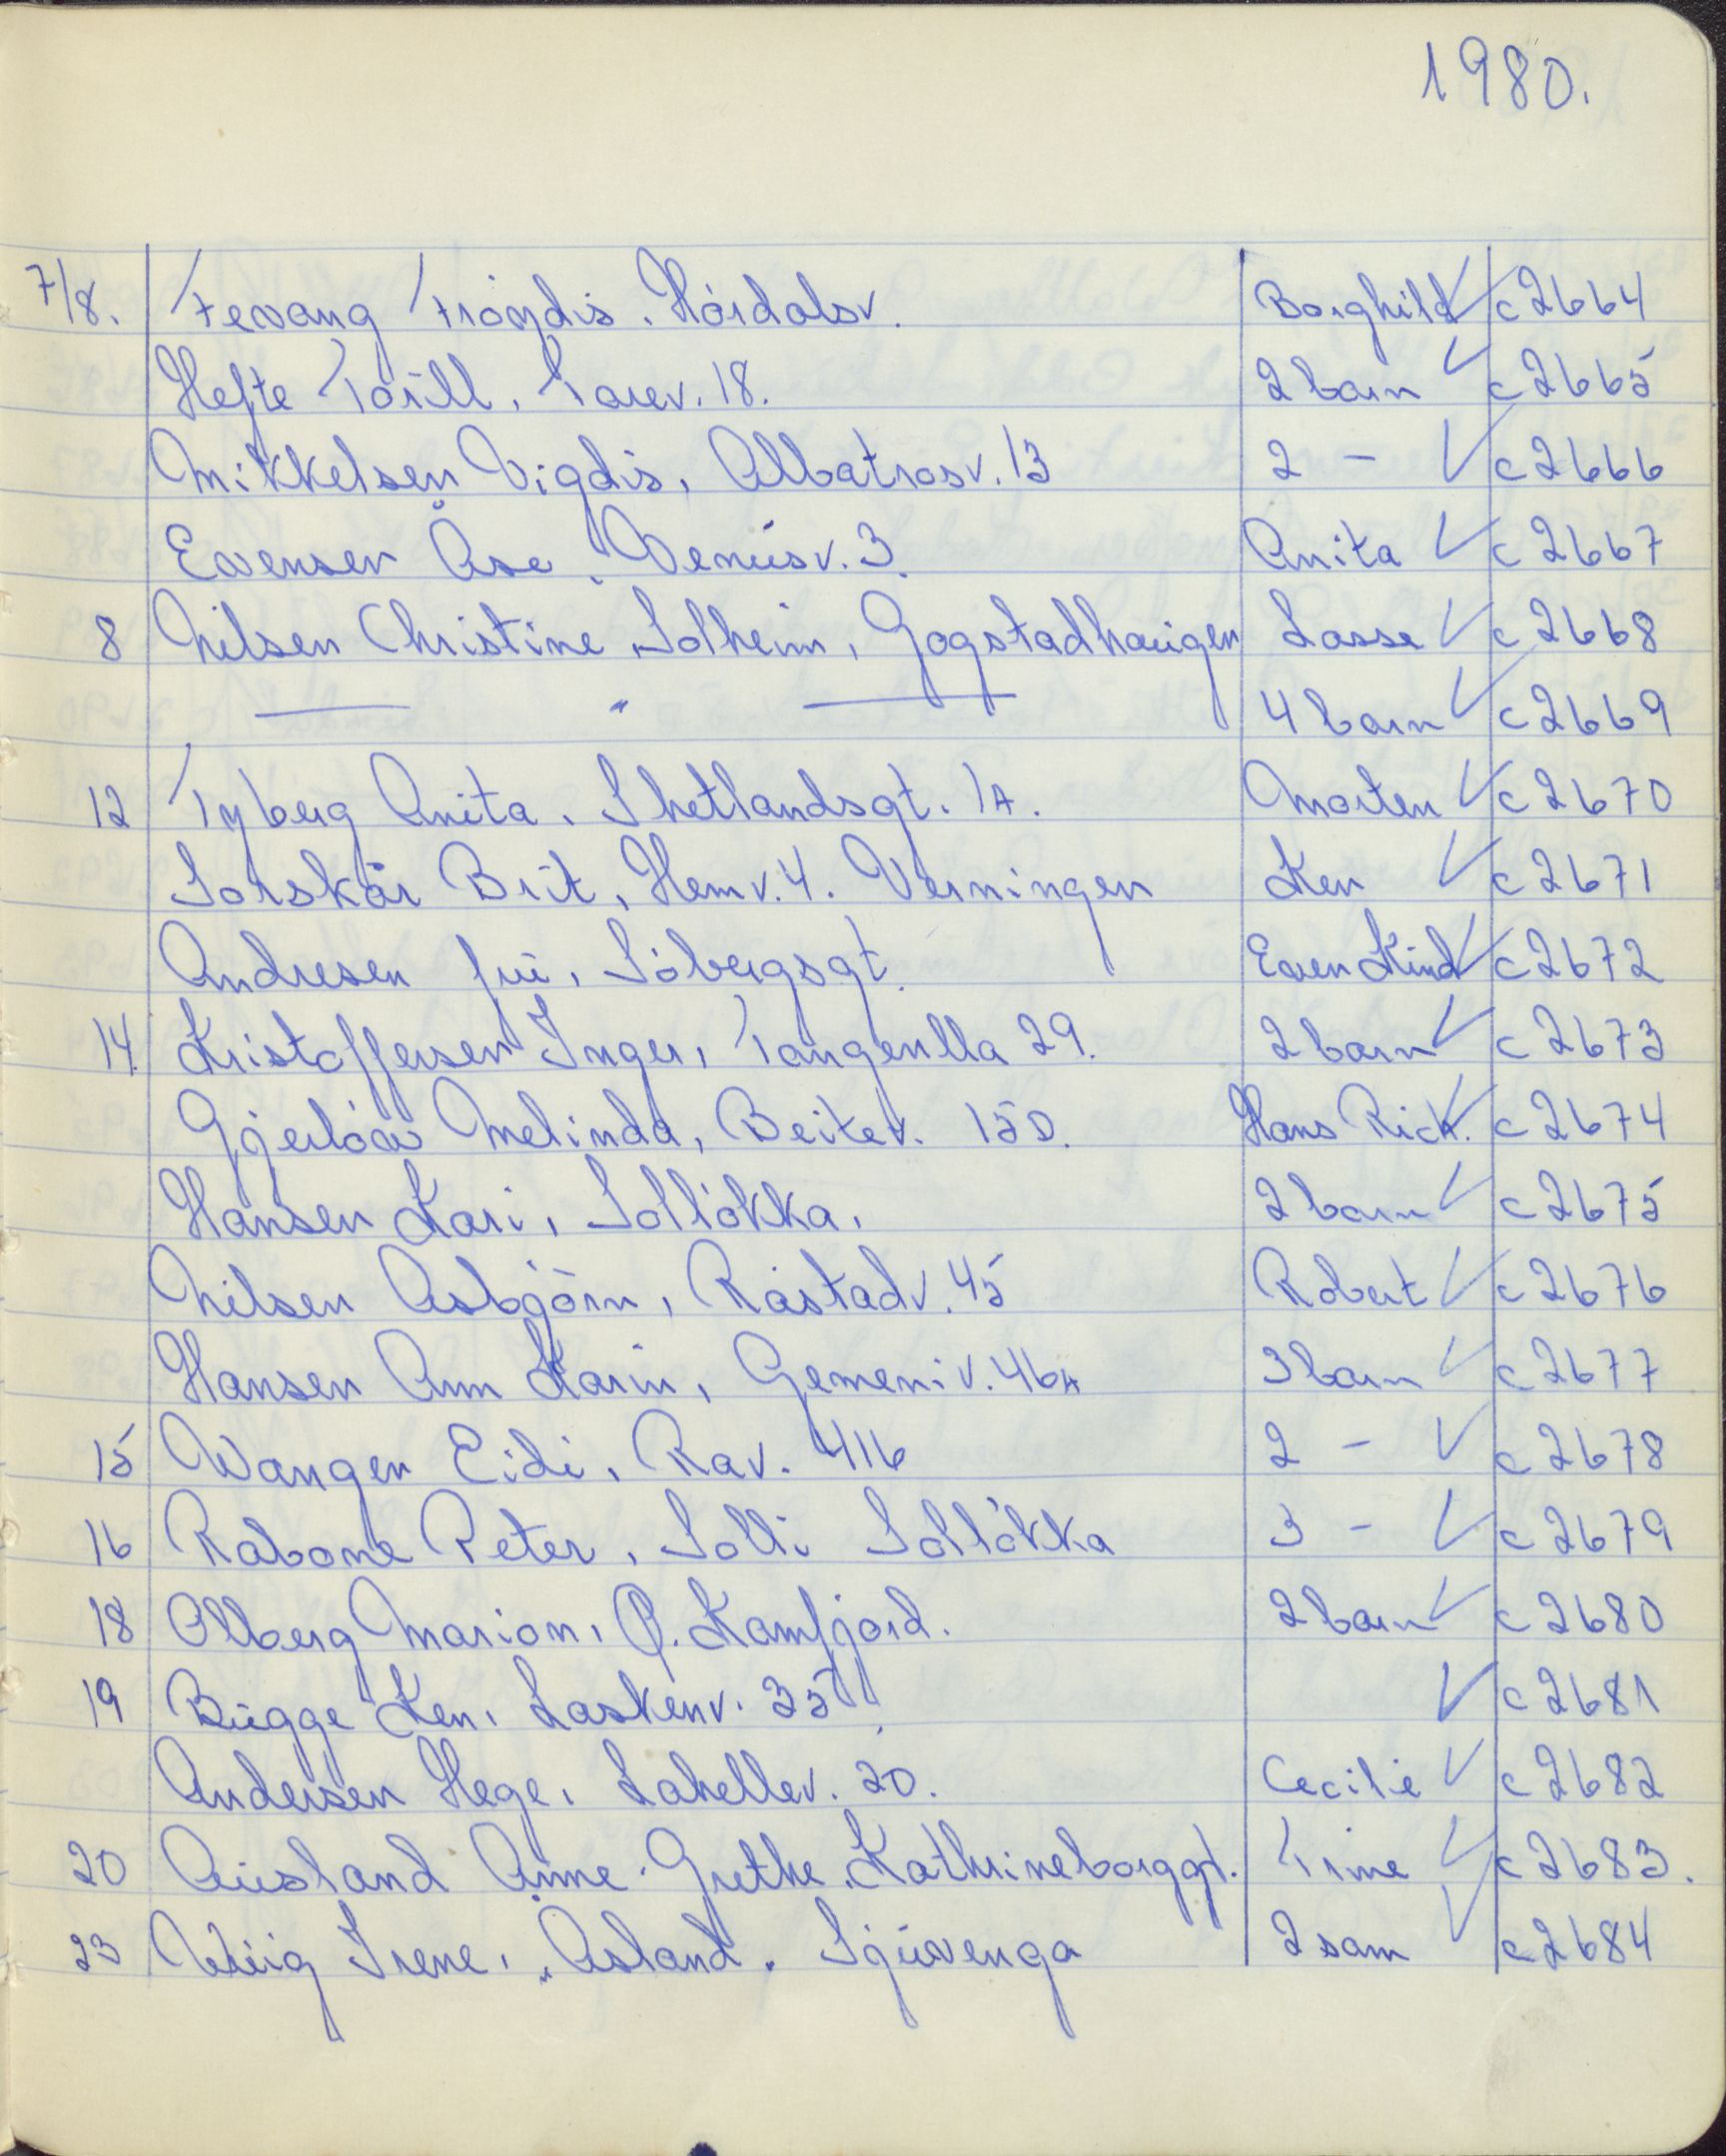 1980.
7/8. Fevang Frøydis. Hårdalsv. Borghild ✓ c2664
Hefte Torill, Torev. 18. 2 barn ✓ c2665
Mikkelsen Vigdis, Albatrosv. 13 2 - ✓ c2666
Evensen Åse, Venusv. 3. Anita ✓ c2667
8 Nilsen Christine, Solheim, Gogstadhaugen Lasse ✓ c2668
— " — 4 barn ✓ c2669
12 Tyberg Anita, Shetlandsgt. 1A. Morten ✓ c2670
Sorskår Brit, Hemv. 4. Verningen Ken ✓ c2671
Andresen fru, Søbergsgt. Even Kind ✓ c2672
14. Kristoffersen Inger, Tangenlla 29. 2 barn ✓ c2673
Gjerløw Melinda, Beitev. 15D. Hans Rick. ✓ c2674
Hansen Kari, Solløkka. 2 barn ✓ c2675
Nilsen Asbjørn, Råstadv. 45 Robert ✓ c2676
Hansen Ann Karin, Gemeniv. 46A 3 barn ✓ c2677
15 Wangen Eidi, Rav. 416 2 - ✓ c2678
16 Rabone Peter, Solli Solløkka 3 - ✓ c2679
18 Olberg Marion, Ø. Kamfjord. 2 barn ✓ c2680
19 Bugge Ken, Laskenv. 35 ✓ c2681
Andersen Hege, Lahellev. 20. Cecilie ✓ c2682
20 Ausland Anne-Grethe, Kathrineborggt. Trine ✓ c2683.
23 Wiig Irene, Åsland. Sjuvenga 2 sam ✓ c2684